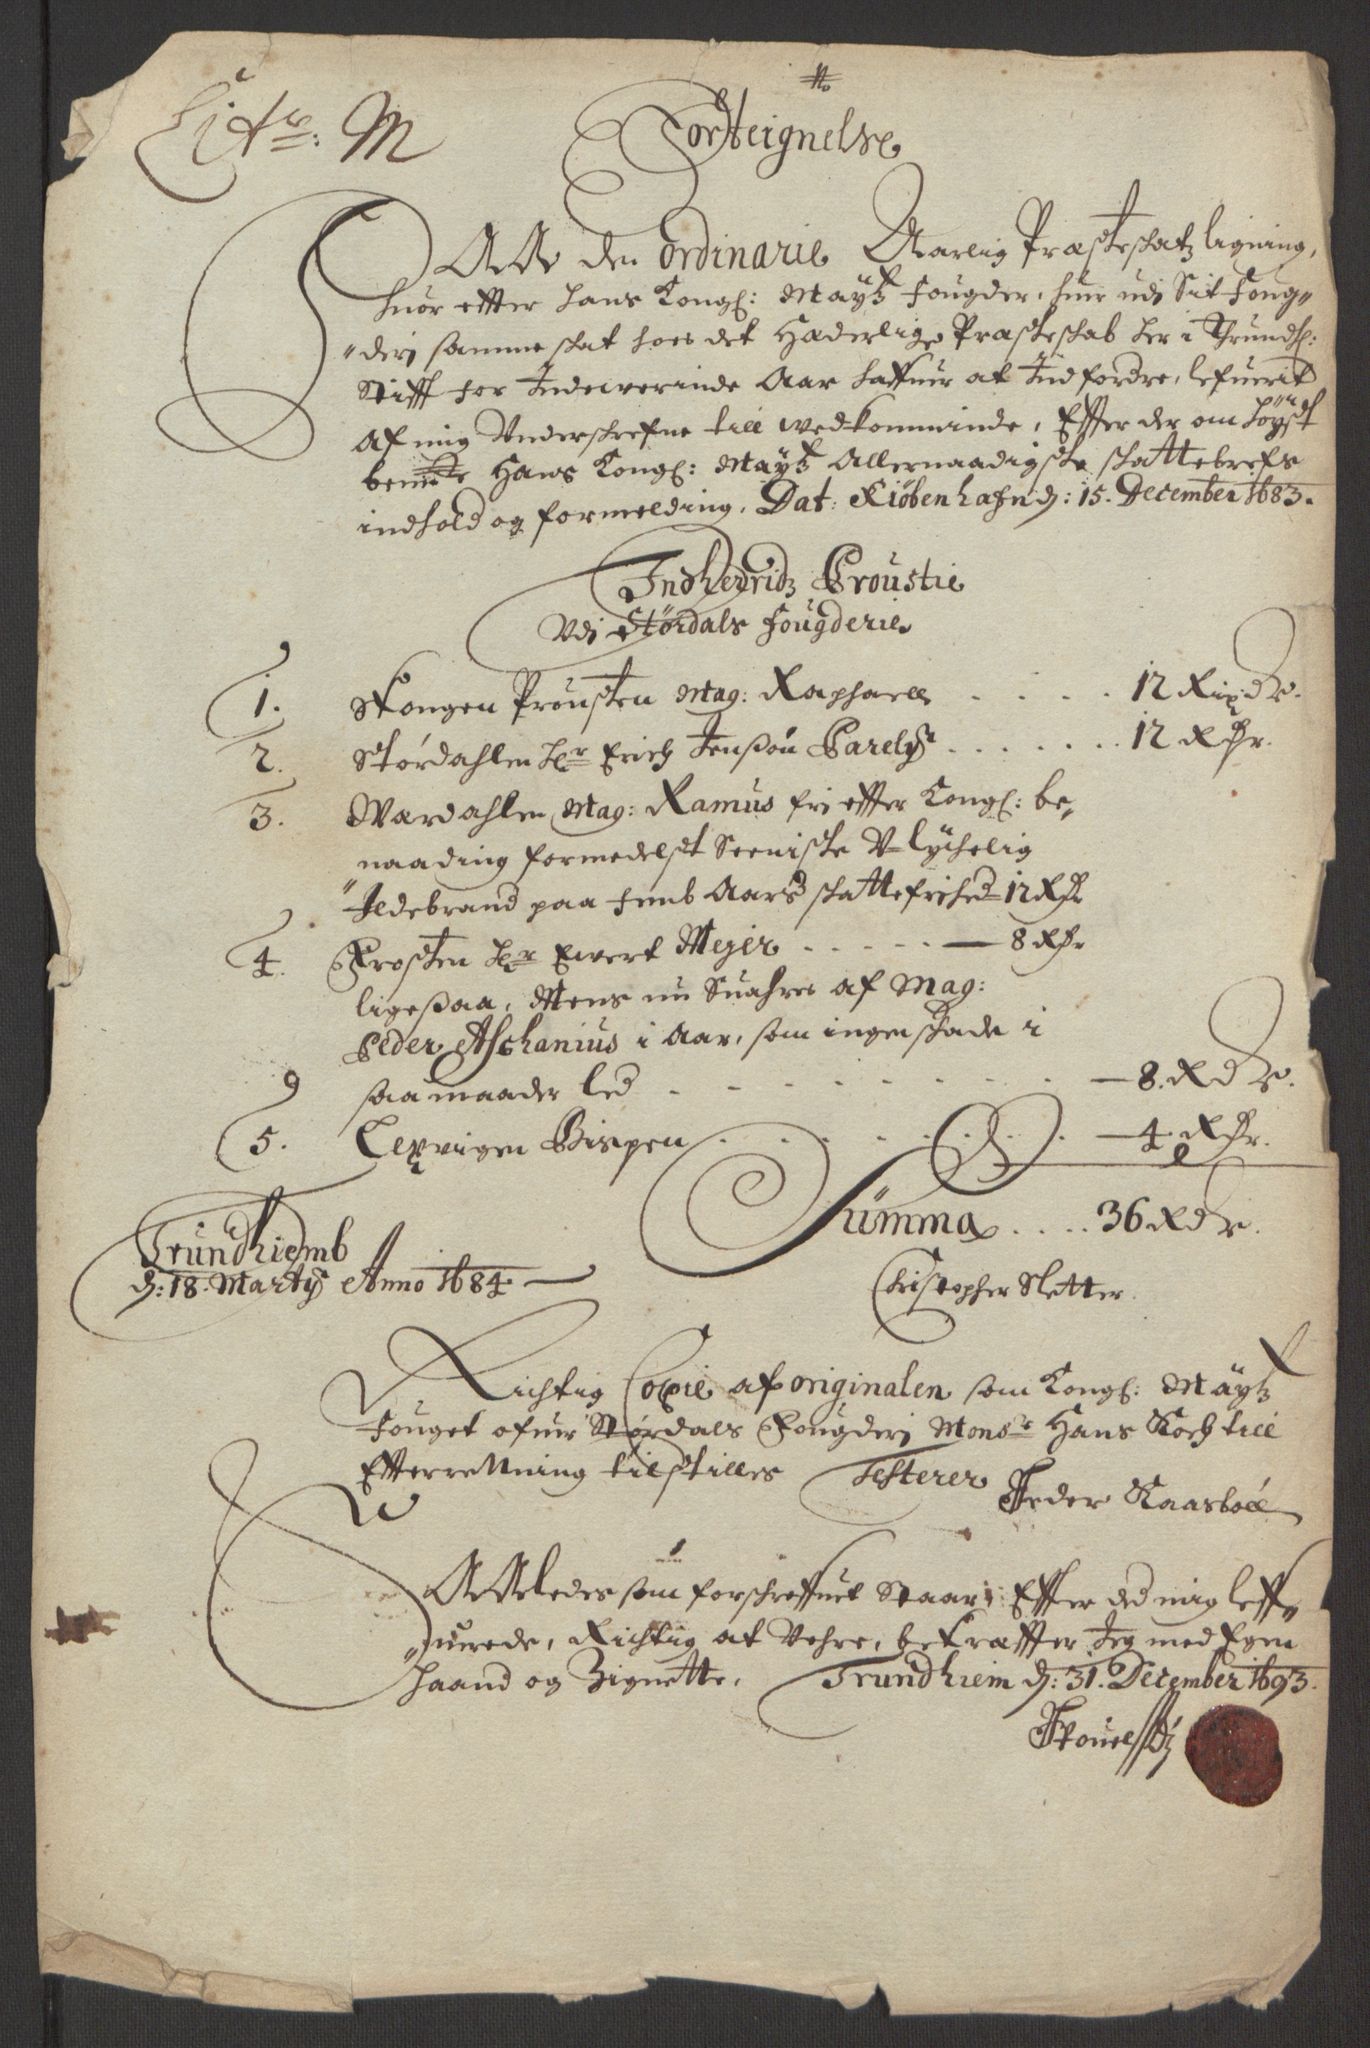 Litr: M
No
Forteignelse
Paa den ordinarie Aarlig Præsteskatz ligning,
huor effter hans Kongl: Maytz fougder, huer udi Sit foug-
derj samme skat hoes det Hæderlige Præsteskab her i Trundhl:
Stifft for Indewerinde Aar haffuer at Indfordre, lefuerit
af mig Underskrefne till wedkommende, Effter den om høyst
bemte Hans Kongl: Maytz Allernaadigste skattebrefs
indhold og formelding, Dat: Kiøbenhafn d: 15. December 1683.
Indherridz Proustie
Udi Størdals fougderie
1. Skongen Prousten Mag: Raphaell . . . . 12 Rixdr.
2. Størdahlen hr Erich Jenßøn Parelj . . . . . . 12 Rdr.
3. Wærdahlen Mag: Ramus fri effter Kongl: be-
naading formedelst Seeniste U-lychelig
Ildebrand paa femb Aars skattefrihed 12 Rdr
4. Frosten hr Ewert Mejer . . . . . 8 Rdr
ligesaa, Mens nu Suahres af Mag:
Peder Aschanius i Aar, som ingen skade i
saa maader led . . . . . . . 8. Rdr.
5. Lexvigen Bispen . . . . . . . 4 Rdr.
Summa . . . . 36 Rdr.
Trundhiemb
d: 18. Martij Anno 1684.
Christopher Sletter.
Richtig Copie af originalen som Kongl: Maytz
fouget ofuer Størdals Fougderj Monsr Hans Koch till
Efterretning tilstilles Testerer Peder Kaasböll
Saaledes som forschreffuet Staar, Effter ded mig leff-
uerede, Richtig at Vehre, bekræffter Jeg med Egen
haand og Zignette, Trundhiem d: 31. December 1693.